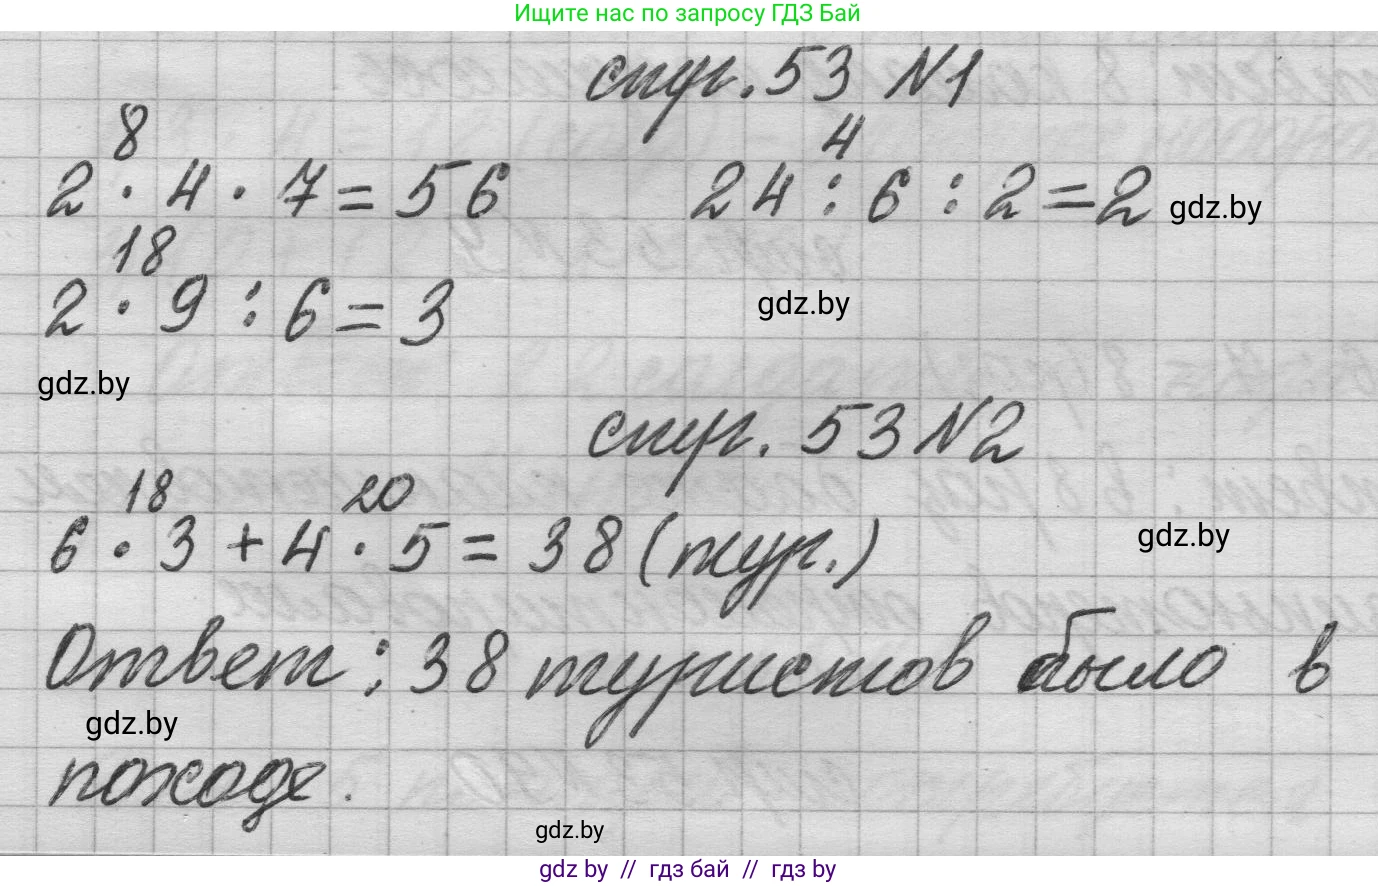 Ищите нас по запросу ГДЗ Бай
стр. 53 №1
8
2 · 4 · 7 = 56
4
24 : 6 : 2 = 2
gdz.by
18
2 · 9 : 6 = 3
gdz.by
gdz.by
стр. 53 №2
18 20
6 · 3 + 4 · 5 = 38 (тур.)
gdz.by
Ответ: 38 туристов было в
gdz.by
походе.
gdz.by
gdz by // гдз бай // гдз by